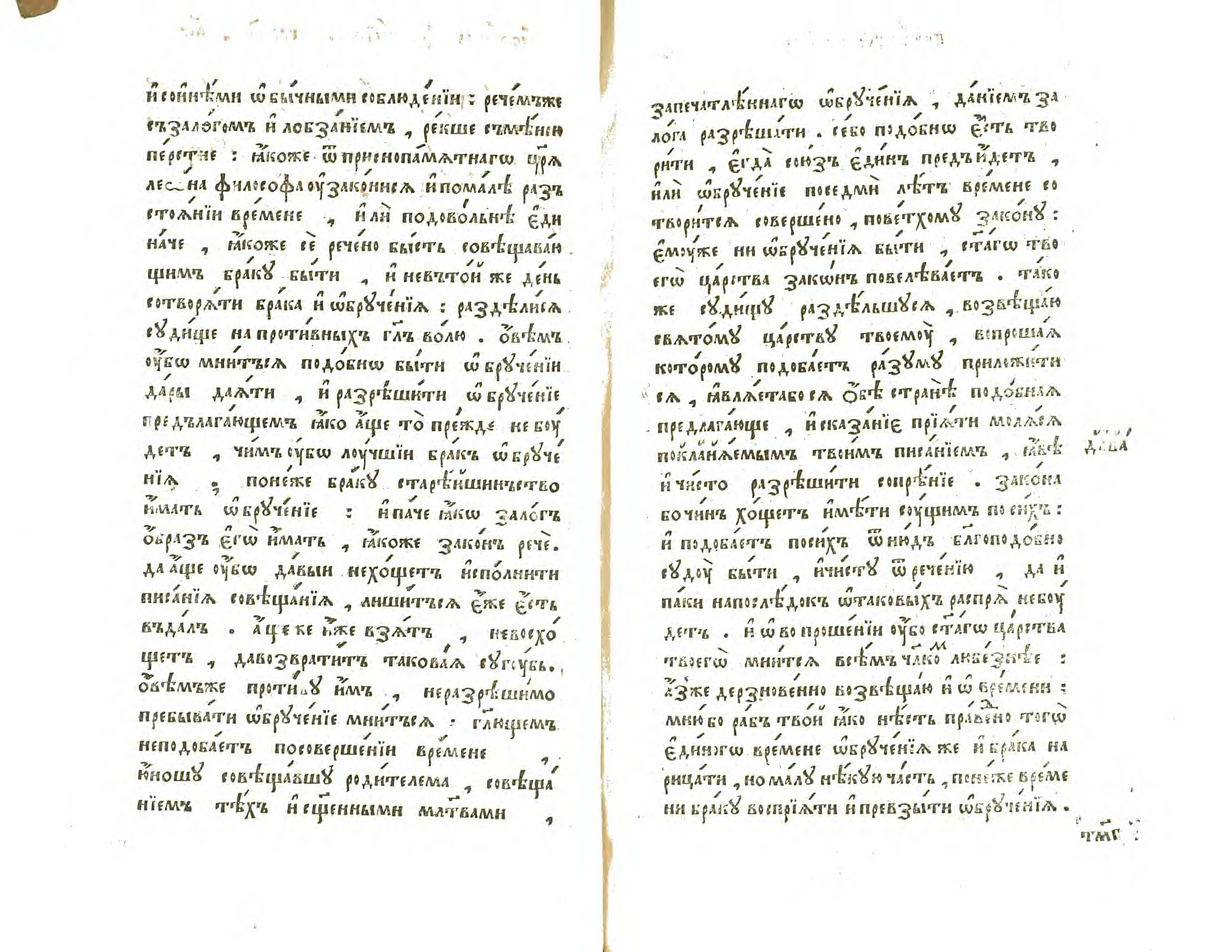 и҆сои҆нѣ́ми ѡ҆бы́чными соблюде́нїи : рече́мъже
съзало́гомъ и҆ лобза́нїемъ , ре́кше съмѣ́ною
пе́рстне : ꙗ҆́коже ѿ приснопа́мѧтнагѡ цр҃ѧ̀
фило́софа оу҆зако́нисѧ и҆пома́лѣ разъ
стоѧ́нїи вре́мене , и҆лѝ подово́льнѣ є҆ди
на́че , ꙗ҆́коже сѐ рече́но бы́сть совѣщава́ю
щимъ бра́ку бы́ти , и҆ невъто́й же де́нь
сотворѧ́ти бра́ка и҆ ѡ҆брꙋче́нїѧ : раздѣли́сѧ
сꙋди́ще на проти́вныхъ гл҃ъ во́лю . ѻ҆́вѣмъ
оу҆́бѡ мни́тъсѧ подо́бнѡ бы́ти ѡ҆брꙋче́нїи
да́ры даѧ́ти , и҆ разрѣши́ти ѡ҆брꙋче́нїе
предълага́ющемъ ꙗ҆́ко а҆́ще то̀ пре́жде не боу́
детъ , чи́мъ оу҆́бѡ лоу́чшїи бра́къ ѡ҆брꙋче́
нїѧ ; поне́же бра́кꙋ старѣ́йшинъство
и҆́мать ѡ҆брꙋче́нїе : и҆па́че ꙗ҆́кѡ зало́гъ
ѻ҆́бразъ є҆гѡ̀ и҆́мать , ꙗ҆́коже зако́нъ речѐ.
да а҆́ще оу҆́бѡ да́выи нехо́щетъ и҆спо́лнити
писа́нїѧ совѣща́нїѧ , лиши́тъсѧ є҆́же є҆́сть
въда́лъ . а҆́ще же и҆́же взѧ́тъ , невосхо́
щетъ , давозврати́тъ такова́ѧ сꙋгꙋ́бь.
ѻ҆́вѣмъже проти́вꙋ и҆̀мъ , неразрѣши́мо
пребыва́ти ѡ҆брꙋче́нїе мни́тъсѧ : гл҃ющемъ
неподоба́етъ посоверше́нїи вре́мене ,
ю҆́ношꙋ совѣща́вшꙋ роди́телема , совѣща́
нїемъ тѣ́хъ и҆ сщ҃е́нными мл҃твами ,
запечатлѣ́ннагѡ ѡ҆брꙋче́нїѧ , да́нїемъ за
ло́га разрѣша́ти . се́бо подо́бнѡ є҆́сть тво
ри́ти , є҆гда̀ сою́зъ є҆ди́нъ предъи́детъ ,
и҆лѝ ѡ҆брꙋче́нїе поседмѝ лѣ́тъ вре́мене со
твори́тсѧ соверше́но , пове́тхомꙋ зако́нꙋ :
є҆мꙋ́же ни ѡ҆брꙋче́нїѧ бы́ти , ст҃а́гѡ тво
егѡ̀ ца́рства зако́нъ повелѣва́етъ . та́ко
же сꙋди́щꙋ раздѣ́льшꙋсѧ , возвѣща́ю
свѧто́мꙋ ца́рствꙋ твоемоу̀ , вопроша́ѧ
кото́ромꙋ подоба́етъ ра́зꙋмꙋ приложи́ти
сѧ , ꙗ҆влѧ́етабосѧ ѻ҆́бѣ странѣ̀ подо́бнаѧ
предлага́юще , и҆сказа́нїе прїѧ́ти молѧ́сѧ
поклаи҆нѧ́емымъ твои́мъ писа́нїемъ , ꙗ҆́вѣ
и҆ чи́сто разрѣши́ти сопрѣ́нїе . зако́на
бочи́нъ хо́щетъ и҆мѣ́ти соу́щимъ по си́хъ :
и҆ подоба́етъ поси́хъ ѿню́дъ бл҃гоподо́бно
сꙋдоу̀ бы́ти , и҆чи́стꙋ ѿрече́нїю , да и҆
па́ки напослѣ́докъ ѡ҆таковы́хъ распрѧ̀ небоу́
детъ . и҆ ѡ҆ вопроше́нїи оу҆́бо ст҃а́гѡ ца́рства
твоегѡ̀ мни́тсѧ всѣ́мъ чл҃ко́м любе́знѣе :
а҆́зже дерзнове́нно возвѣща́ю и҆ ѡ҆ вре́мени :
мню́ бо ра́бъ тво́й ꙗ҆́ко нѣ́сть пра́ведно тогѡ̀
є҆ди́ногѡ вре́мене ѡ҆брꙋче́нїѧ же и҆ бра́ка на
рица́ти , но ма́лꙋ нѣ́кꙋю ча́сть , поне́же вре́ме
ни бра́кꙋ воспрїѧ́ти и҆ превзы́ти ѡ҆брꙋче́нїѧ .